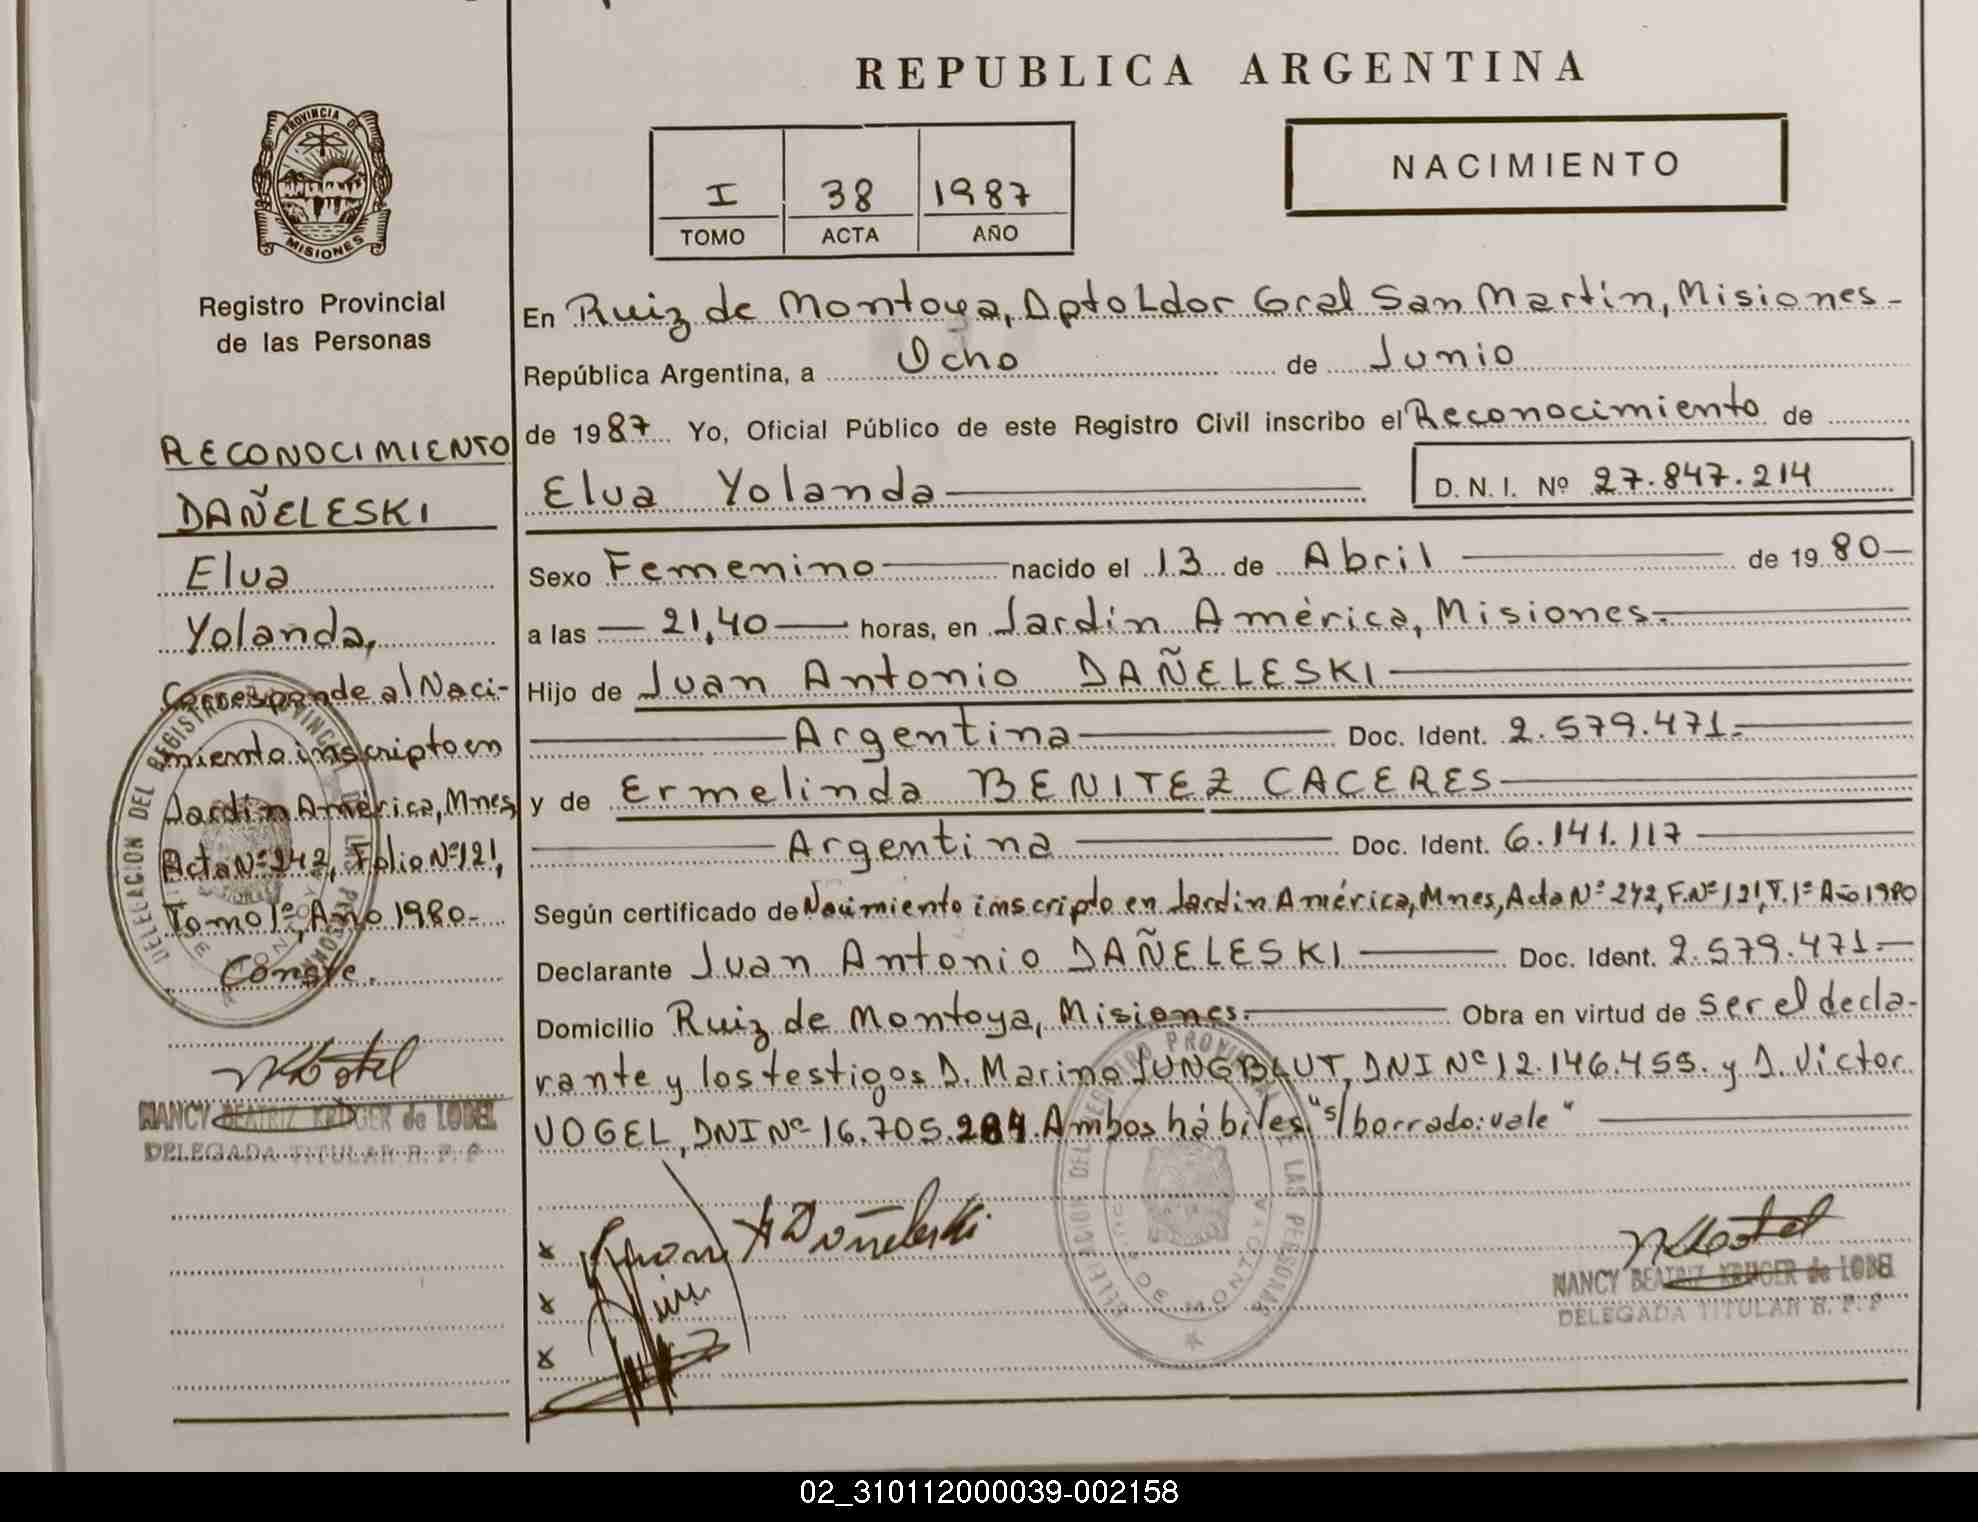 REPUBLICA ARGENTINA
PROVINCIA DE
MISIONES
Registro Provincial
de las Personas
I 38 1987
TOMO ACTA AÑO
NACIMIENTO
RECONOCIMIENTO
DAÑELESKI
Elva
Yolanda,
Corresponde al Naci-
miento inscripto en
Jardín América, Mnes,
Acta Nº 242, Folio Nº 121,
Tomo 1º, Año 1980-
Conste.
NANCY BEATRIZ KRUGER de LOBEL
DELEGADA TITULAR R. P. P
En Ruiz de Montoya, Dpto Ldor Gral San Martín, Misiones-
República Argentina, a Ocho de Junio
de 1987 Yo, Oficial Público de este Registro Civil inscribo el Reconocimiento de
Elva Yolanda D. N. I. Nº 27.847.214
Sexo Femenino nacido el 13 de Abril de 1980-
a las 21,40 horas, en Jardín América, Misiones.
Hijo de Juan Antonio DAÑELESKI
Argentina Doc. Ident. 2.579.471.
y de Ermelinda BENITEZ CACERES
Argentina Doc. Ident. 6.141.117
Según certificado de Nacimiento inscripto en Jardín América, Mnes, Acta Nº 242, F. Nº 121, T. 1º Año 1980
Declarante Juan Antonio DAÑELESKI Doc. Ident. 2.579.471.
Domicilio Ruiz de Montoya, Misiones. Obra en virtud de ser el decla-
rante y los testigos D. Marino JUNGBLUT, DNI Nº 12.146.455. y D. Victor
VOGEL, DNI Nº 16.705.284 Ambos hábiles. "s/borrado: vale"
DELEGACION DEL REGISTRO PROVINCIAL DE LAS PERSONAS
RUIZ DE MONTOYA
x
x
x
NANCY BEATRIZ KRUGER de LOBEL
DELEGADA TITULAR R. P. P
02_310112000039-002158